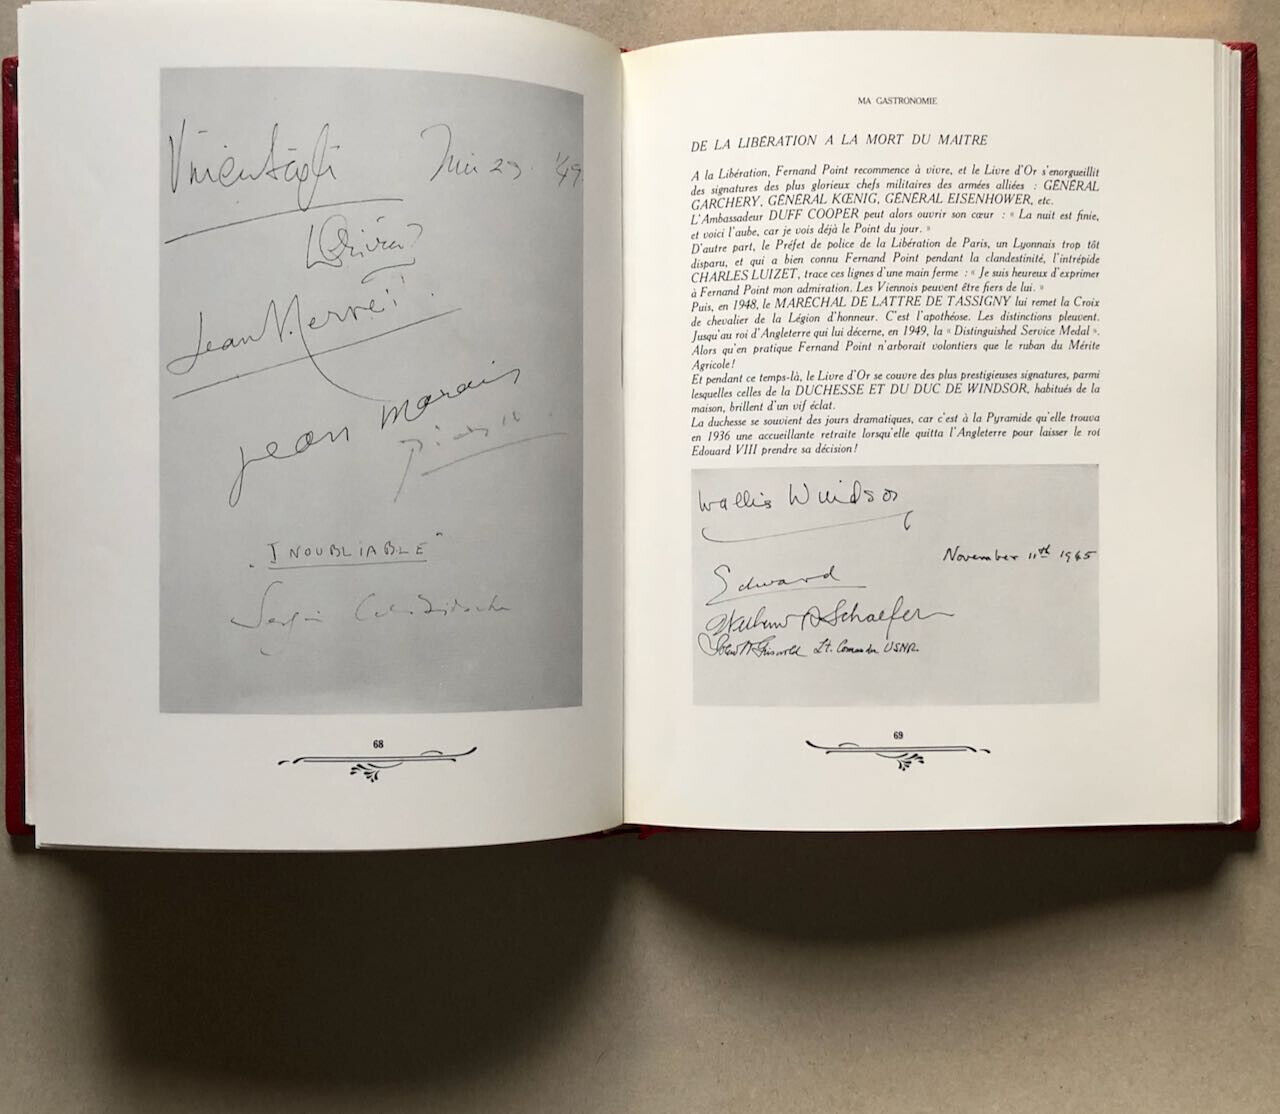 Juin 23. 1/49
Jean Nerveïï
Jean Marais
"INOUBLIABLE"
68
MA GASTRONOMIE
DE LA LIBÉRATION A LA MORT DU MAITRE
A la Libération, Fernand Point recommence à vivre, et le Livre d'Or s'enorgueillit
des signatures des plus glorieux chefs militaires des armées alliées : GÉNÉRAL
GARCHERY, GÉNÉRAL KŒNIG, GÉNÉRAL EISENHOWER, etc.
L'Ambassadeur DUFF COOPER peut alors ouvrir son cœur : « La nuit est finie,
et voici l'aube, car je vois déjà le Point du jour. »
D'autre part, le Préfet de police de la Libération de Paris, un Lyonnais trop tôt
disparu, et qui a bien connu Fernand Point pendant la clandestinité, l'intrépide
CHARLES LUIZET, trace ces lignes d'une main ferme : « Je suis heureux d'exprimer
à Fernand Point mon admiration. Les Viennois peuvent être fiers de lui. »
Puis, en 1948, le MARÉCHAL DE LATTRE DE TASSIGNY lui remet la Croix
de chevalier de la Légion d'honneur. C'est l'apothéose. Les distinctions pleuvent.
Jusqu'au roi d'Angleterre qui lui décerne, en 1949, la « Distinguished Service Medal ».
Alors qu'en pratique Fernand Point n'arborait volontiers que le ruban du Mérite
Agricole !
Et pendant ce temps-là, le Livre d'Or se couvre des plus prestigieuses signatures, parmi
lesquelles celles de la DUCHESSE ET DU DUC DE WINDSOR, habitués de la
maison, brillent d'un vif éclat.
La duchesse se souvient des jours dramatiques, car c'est à la Pyramide qu'elle trouva
en 1936 une accueillante retraite lorsqu'elle quitta l'Angleterre pour laisser le roi
Edouard VIII prendre sa décision !
Wallis Windsor
November 11th 1945
Edward
Schaefer
Griswold Lt. Comander USNR.
69